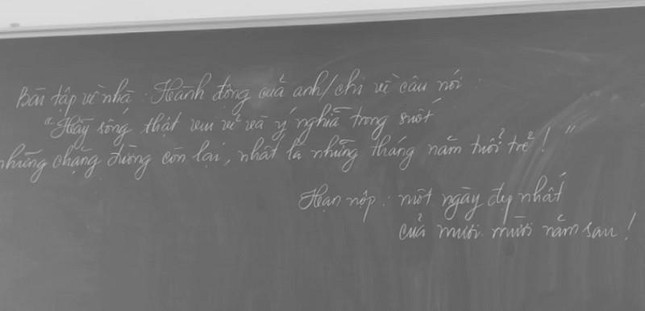 Bài tập về nhà: Hành động của anh/chị về câu nói
"Hãy sống thật vui vẻ và ý nghĩa trong suốt
những chặng đường còn lại, nhất là những tháng năm tuổi trẻ!"
Hạn nộp: một ngày đẹp nhất
của mười mười năm sau!